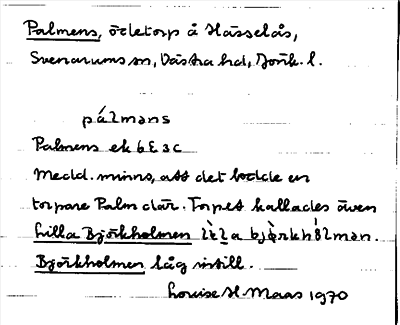 Palmens, ödetorp å Hässelås,
Svenarums sn, Västra hd, Jönk. l.
pálməns
Palmens ek 6E3c
Medd. minns, att det bodde en
torpare Palm där. Torpet kallades även
Lilla Björkholmen lɩ̀la bjö̀rkhɷ́lmən.
Björkholmen låg intill.
Louise H. Maas 1970